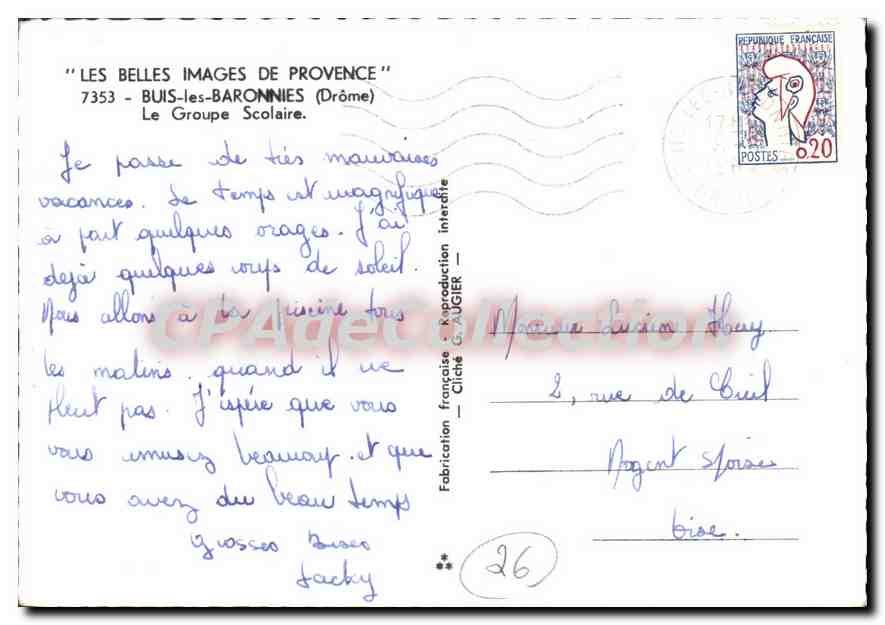 "LES BELLES IMAGES DE PROVENCE"
7353 - BUIS-les-BARONNIES (Drôme)
Le Groupe Scolaire.
Je passe de très mauvaises
vacances. Le temps est magnifique
à part quelques orages. J'ai
dejà quelques coups de soleil.
Nous allons à la piscine tous
les matins quand il ne
pleut pas. J'éspére que vous
vous amusez beaucoup et que
vous avez du beau temps
Grosses Bises
Jacky
Fabrication française - Reproduction interdite
— Cliché G. AUGIER —
REPUBLIQUE FRANÇAISE
POSTES 0,20
Monsieur Lucien
2, rue de Creil
Nogent s/oise
Oise.
26
CPAdeCollection